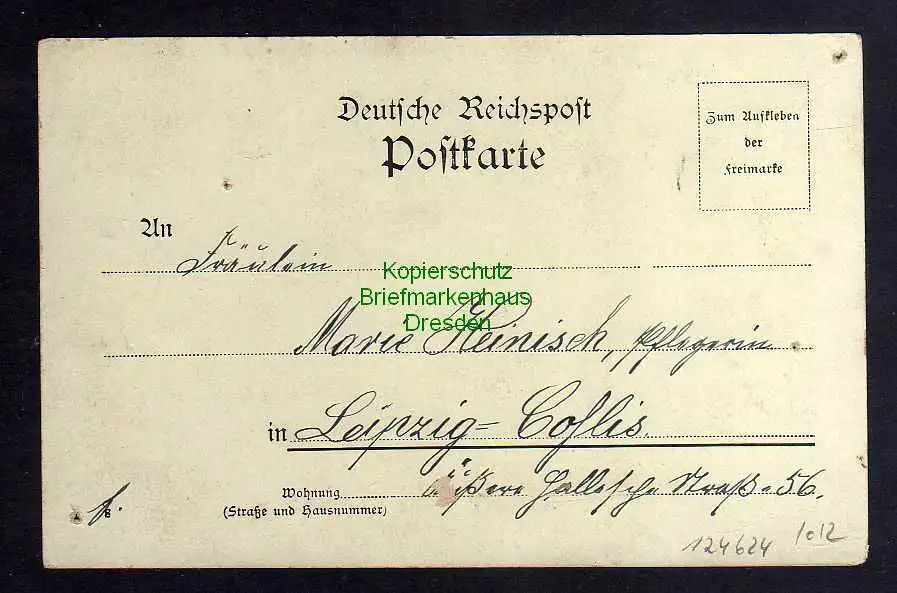 Deutsche Reichspost
Postkarte
Zum Aufkleben
der
Freimarke
An
Fräulein
Kopierschutz
Briefmarkenhaus
Dresden
Marie Heinisch, Pflegerin
in Leipzig-Gohlis.
Wohnung Äußere Hallesche Straße 56.
(Straße und Hausnummer)
124624